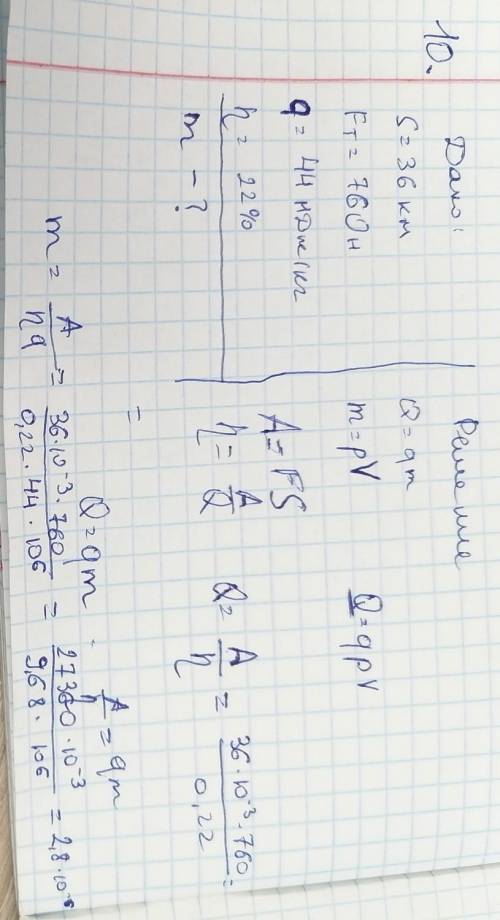 10.
Дано:
S = 36 км
Fт = 760 н
q = 44 мДж/кг
η = 22%
m - ?
Решение
Q = qm
m = ρV
Q = qρV
A = FS
η = A/Q
Q = A/η = 36·10⁻³·760/0,22 =
=
Q = qm
A/η = qm
m = A/ηq = 36·10⁻³·760/0,22·44·106 = 27360·10⁻³/9,68·106 = 2,8·10⁻⁶